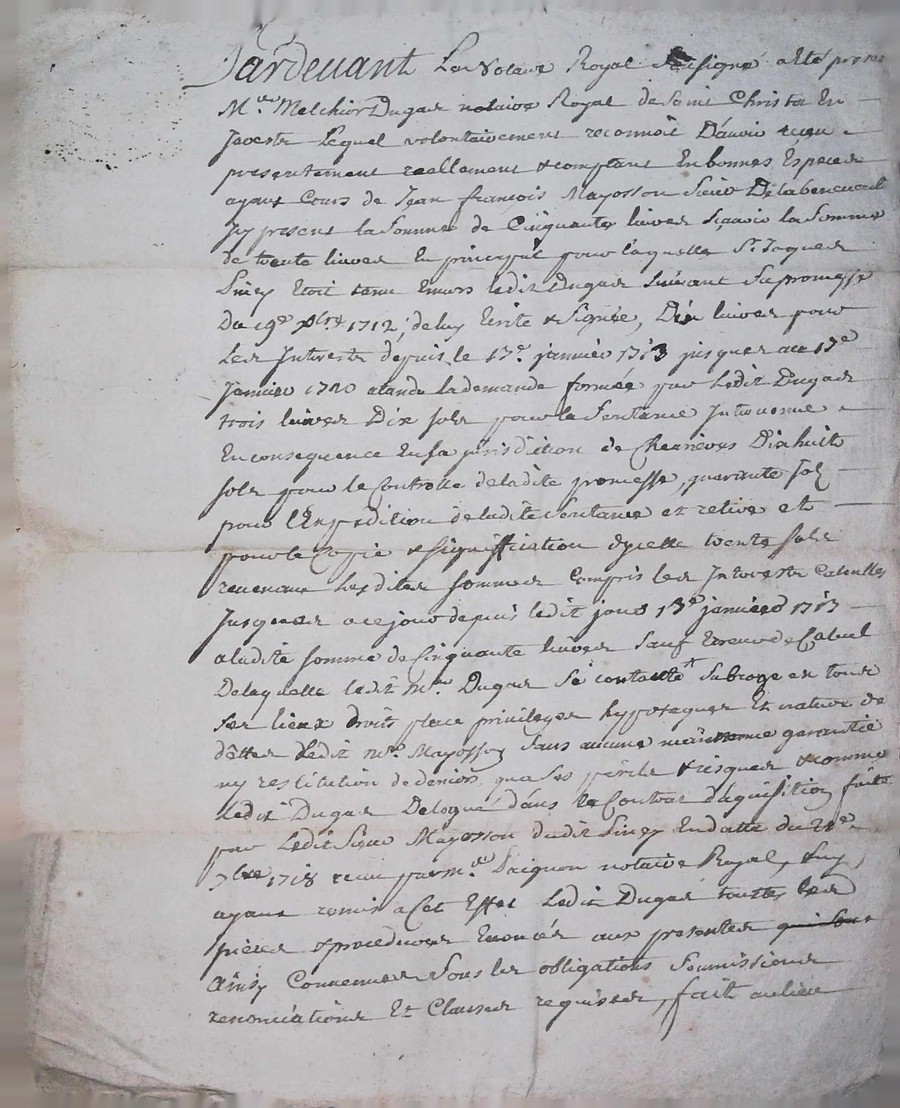 Pardevant Le Notaire Royal soussigné a Eté present
Mre. Melchior Dugas notaire Royal de Saint Christo En
Jarest Lequel volontairement reconnoit D'avoir reçeu
presentement reellement & comptant En bonnes Especes
ayant Cours de Jean françois Mayosson Sieur
Jcy present la Somme de Cinquante livres Sçavoir la Somme
de trente livres En principal pour laquelle Sr. Jaques
Siney Etoit tenu Envers ledit Dugas Suivant Sa promesse
Du 19e 1712, de luy Ecrite & Signée, Dix livres pour
Les Interests depuis le 13e. janvier 1713 jusques au 13e
Janvier 1720 a la demande formée par Ledit Dugas
trois livres Dix sols pour la Sentance Intervenue
En consequence En la jurisdiction de Chevrieres Dixhuit
sols pour le Controlle de ladite promesse, quarante sols
pour l'Expedition de ladite Sentance et
pour la Copie & Signiffication d'ycelle trente sols
revenant Lesdites sommes Compris les Interests Calculles
Jusques a ce jour depuis ledit jour 13e janvier 1713
a ladite somme de Cinquante livres Sauf Erreur de Calcul
De laquelle ledit Mre. Dugas Se contente Subroge en tous
Ses lieux droits place privileges hypoteques Et nature de
dettes Ledit Mre. Mayosson Sans aucune maintenue garantie
ny restitution de deniers, qu'a Ses perils & risques & comme
Ledit Dugas Delegué dans le Contrat d'aquisition faite
par Ledit Sieur Mayosson dudit Siney En datte du
7bre 1718 receu par Mre. notaire Royal, & luy
ayant remis a Cet Effet Ledit Dugas toutes les
pieces & procedures Enoncés aux presentes
Ainsy Convenues Sous les obligations Soumissions
renonciations Et Clauses requises, fait au lieu